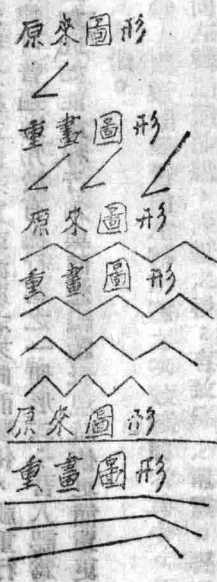 原來圖形
重畫圖形
原來圖形
重畫圖形
原來圖形
重畫圖形